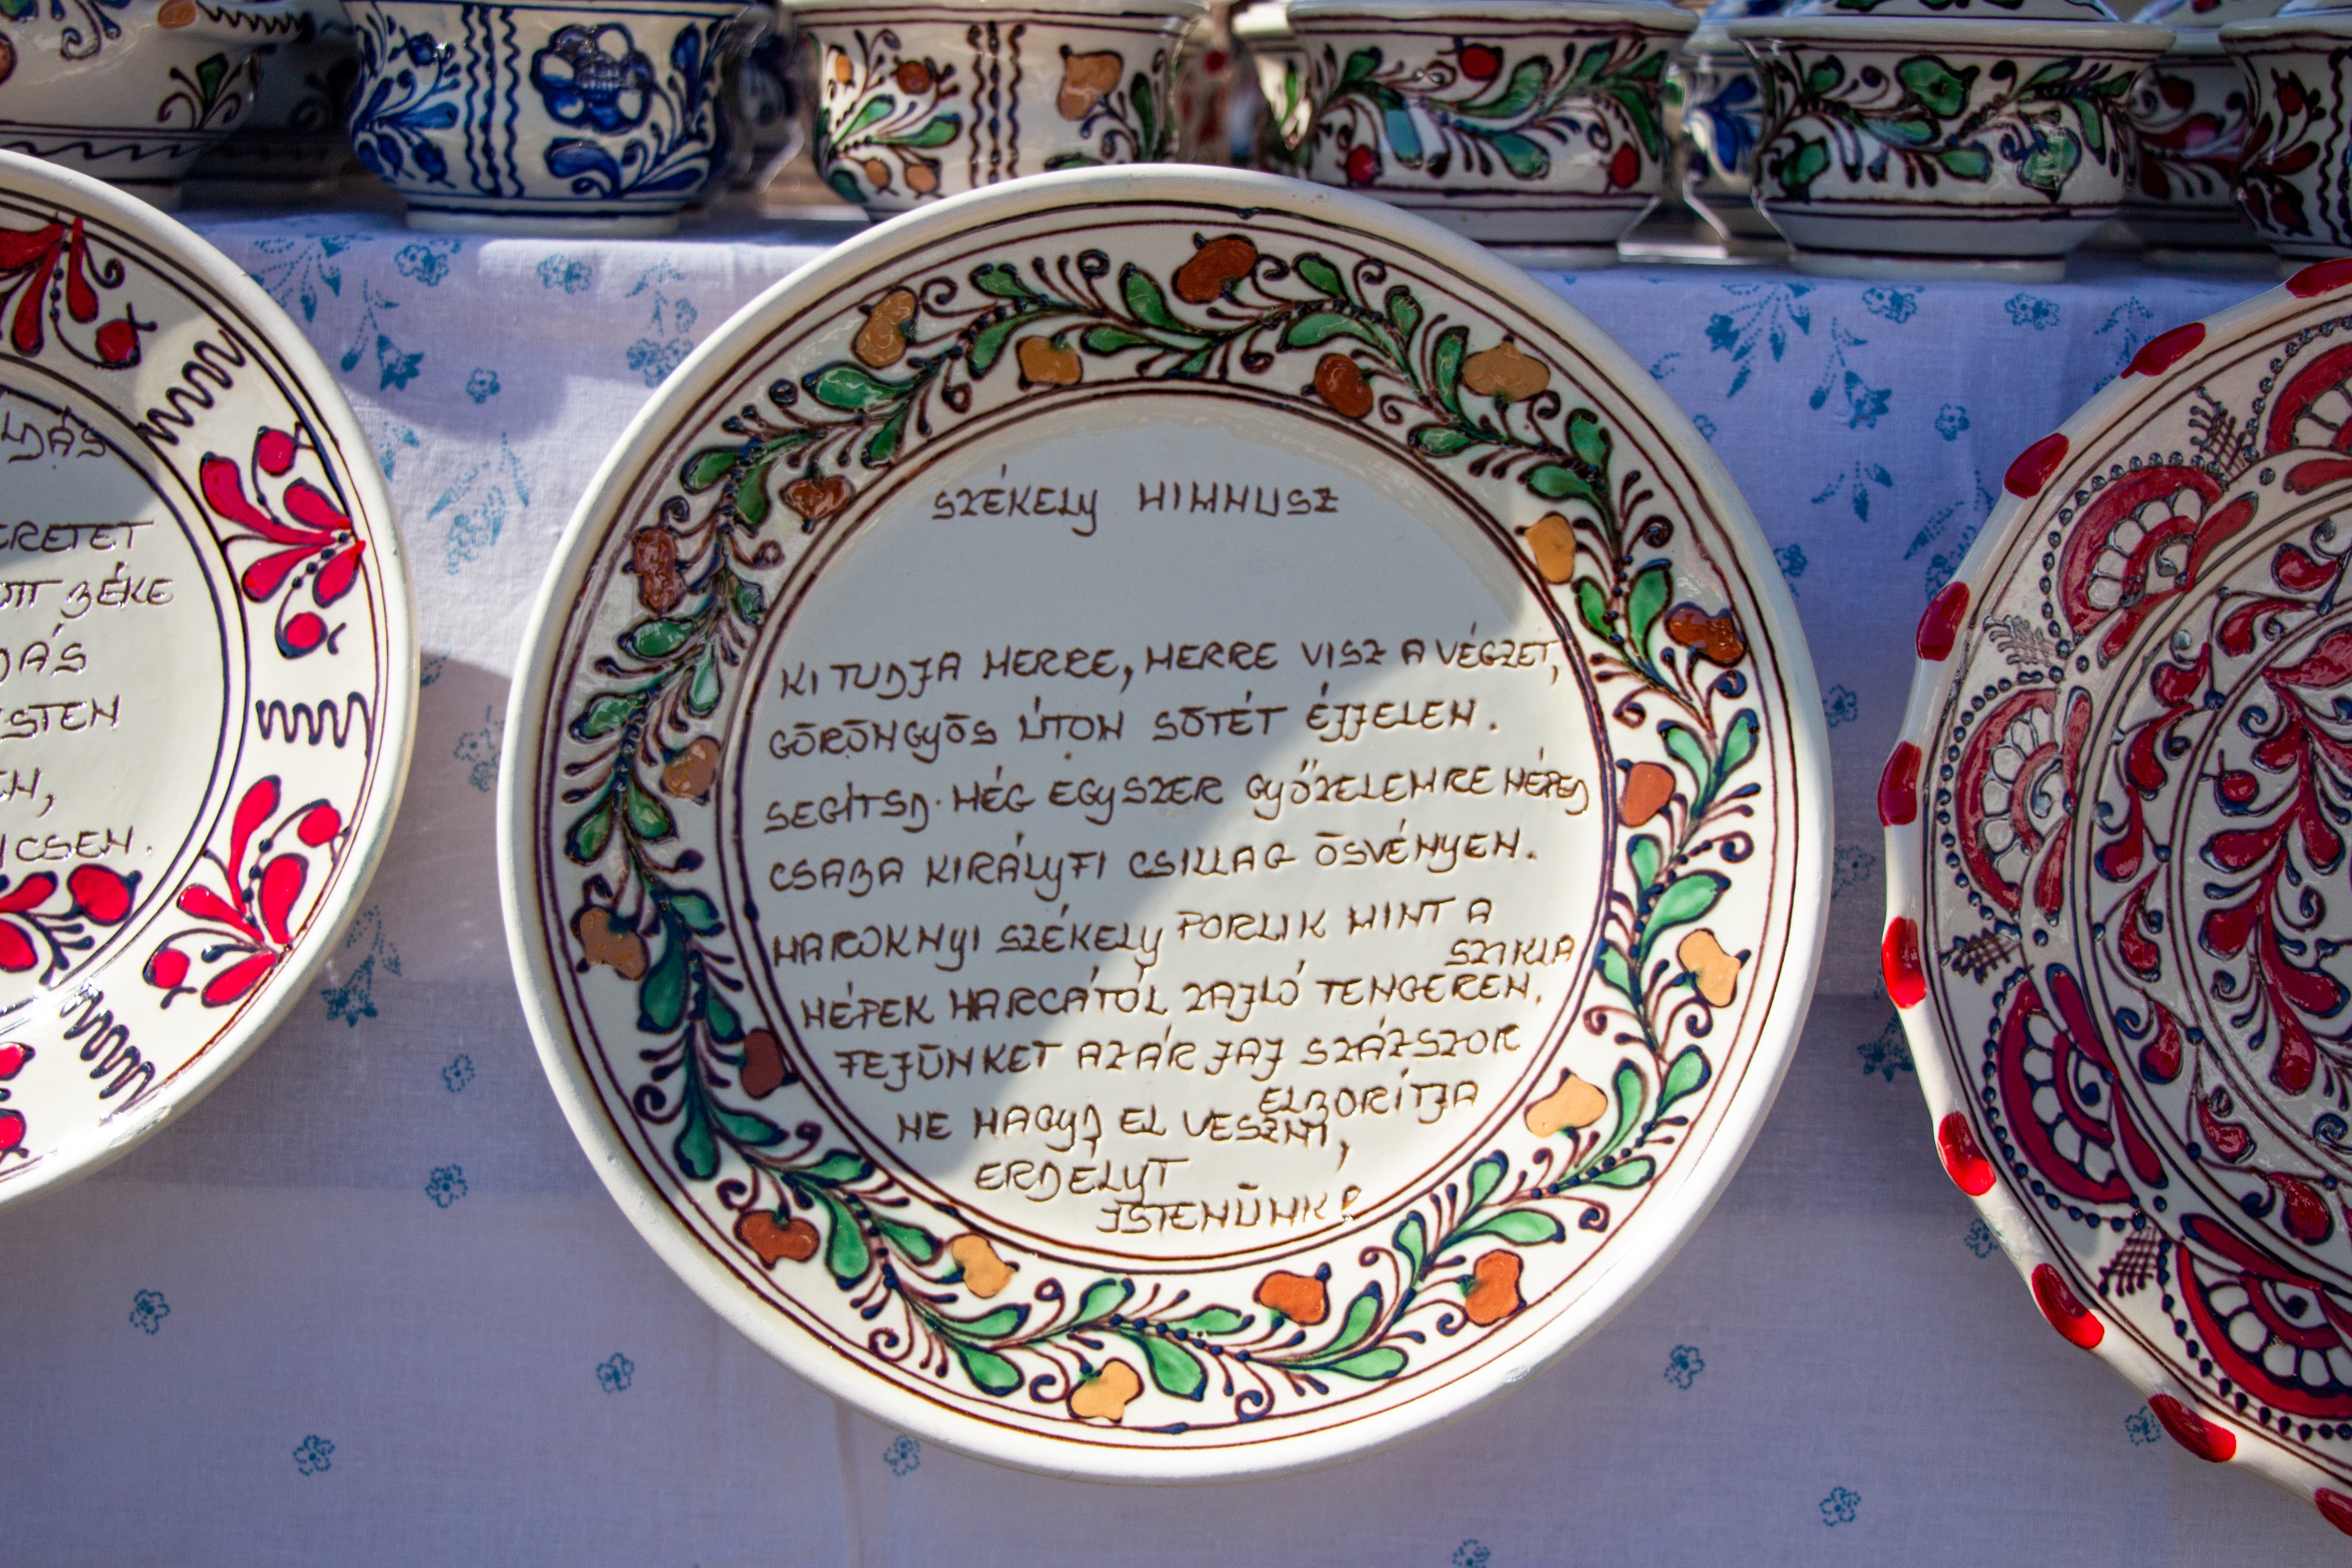 LDÁS
ERETET
OTT BÉKE
DÁS
ISTEN
EN,
NCSEN.
SZÉKELY HIMNUSZ
KI TUDJA MERRE, MERRE VISZ A VÉGZET,
GÖRÖNGYÖS ÚTON SÖTÉT ÉJJELEN.
SEGÍTSD MÉG EGYSZER GYŐZELEMRE NÉPED
CSABA KIRÁLYFI CSILLAG ÖSVÉNYEN.
MAROKNYI SZÉKELY PORLIK MINT A
SZIKLA
NÉPEK HARCÁTÓL ZAJLÓ TENGEREN.
FEJÜNKET AZ ÁR JAJ SZÁZSZOR
ELBORÍTJA
NE HAGYD EL VESZNI,
ERDELYT
ISTENÜNK!